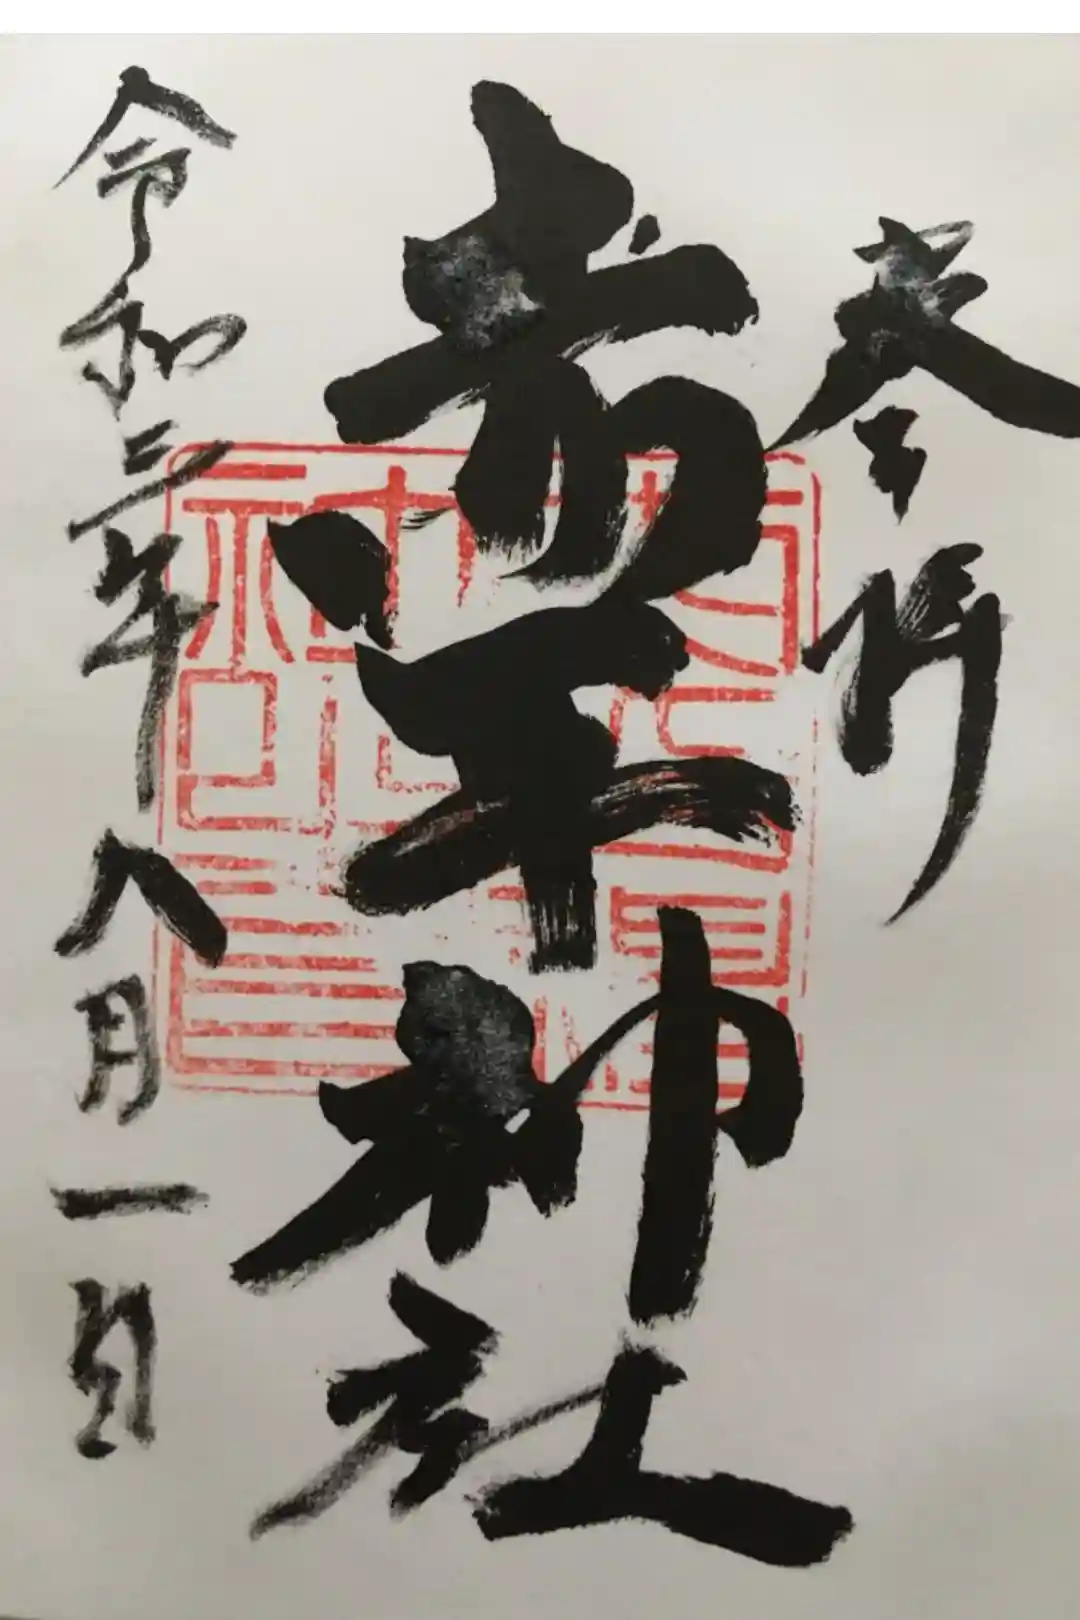 奉拝
平神社
令和三年
八月一日